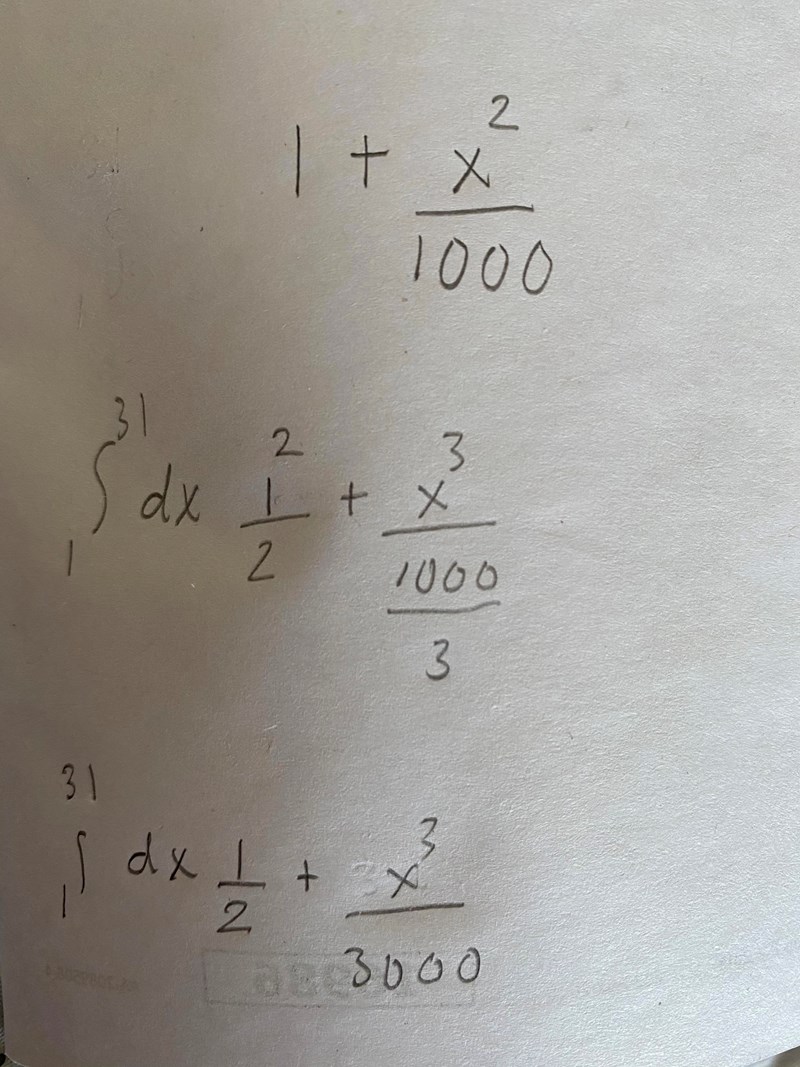 1 + x²/1000
₁∫³¹ dx 1²/2 + x³/1000/3
₁∫³¹ dx 1/2 + x³/3000